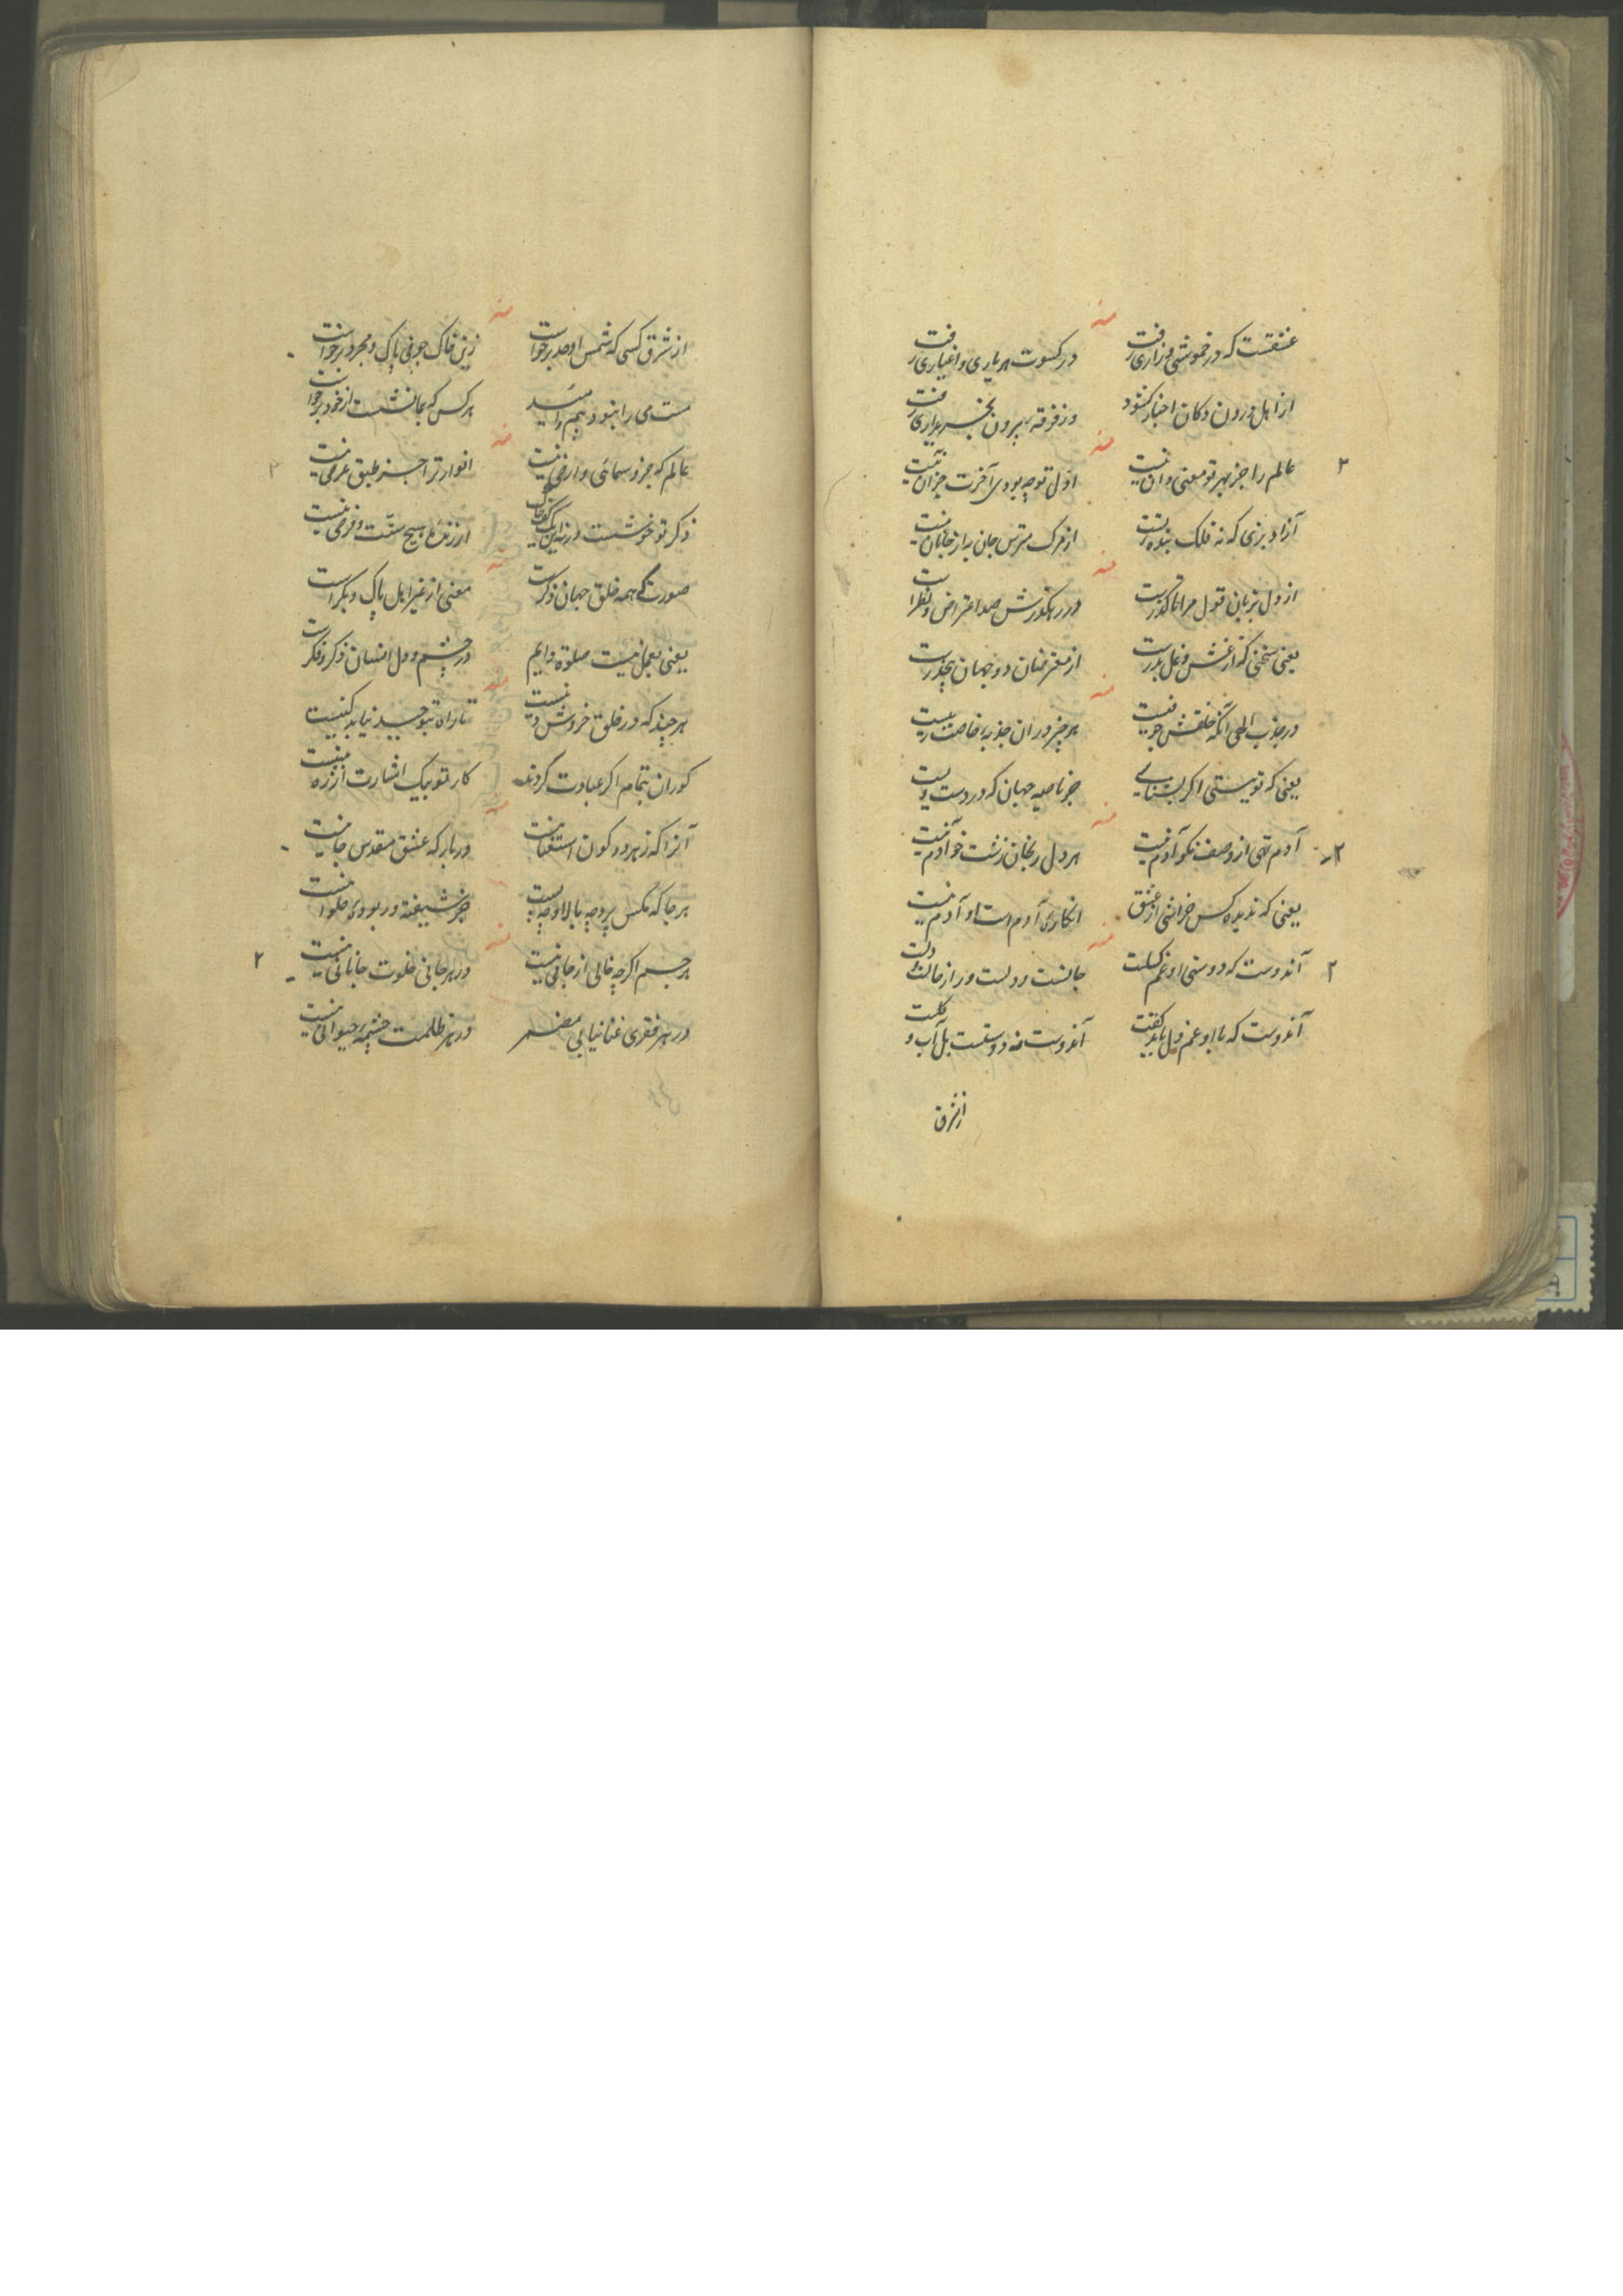 منه
عشقست که در خموشی و زاری رفت در کسوت هر یاری و اغیاری رفت
از اهل درون دکان اخبار کشود وز فرقه بیرون بخریداری رفت
منه
۲ عالم را جز بهر تو معنی دان نیست اول تو چه بودی آخرت جز آن نیست
آزاد بزی که نه فلک بنده تست از مرک مترس جان به از جانان نیست
منه
از دل بزبان قول مرا تا کذرست در رهکذرش صد اعتراض و نظر است
یعنی سخنی که از غش و غل بدرست از معترضان دو جهان بحذرست
منه
در جذب الهی آنکه خلقش جو نیست هر چیز در ان جذبه خاصیت نیست
یعنی که تو نیستی اگر بشناسی جز ناصیه جهان که در دست و نیست
منه
۲ آدم تهی از وصف نکو آدم نیست هر دل رنجان زشت خو آدم نیست
یعنی که ندیده کس خراشی از عشق انکاره آدم است او آدم نیست
منه
۲ آندوست که دوستی او غم کسلت جانست و دلست و راز جانست و دلت
آندوست که با او غم دل باید کفت آندوست نه دوستست بل آب و کلت
از شرق
منه
از شرق کسی که شمس اوحد برخواست زین خاک چو نی پاک و مجرد برخواست
مست می را نبود بیم و امید هر کس که بما نشست از خود برخواست
منه
عالم که جز و سمائی و ارضی نیست انوار ترا جز طبق عرضی نیست
ذکر تو خوشست ورنه این یک کف خاک ارزنده هیچ سنت و فرضی نیست
منه
صورت که همه خلق جهان ذکرست معنی از غیر اهل پاک و بکر است
یعنی بعمل نیست صلوة دایم در چشم و دل انسان ذکر و فکر است
منه
هر چند که در خلق خروش دینیست تا راه بتوحید نیابد کنیست
کوران بتمام اگر عبادت کردند کار تو بیک اشارت از ره بینیست
منه
آنرا که زهر دو کون استغنا نیست در بارکه عشق مقدس جا نیست
هر جا که مکس پرد چه بالا و چه پست جز شیفته در بوده حلوا نیست
منه
۲ هر جسم اکر چه خالی از جانی نیست در هر جانی خلوت جانانی نیست
در هر فقری غنا نیابی مضمر در هر ظلمت چشمه حیوانی نیست